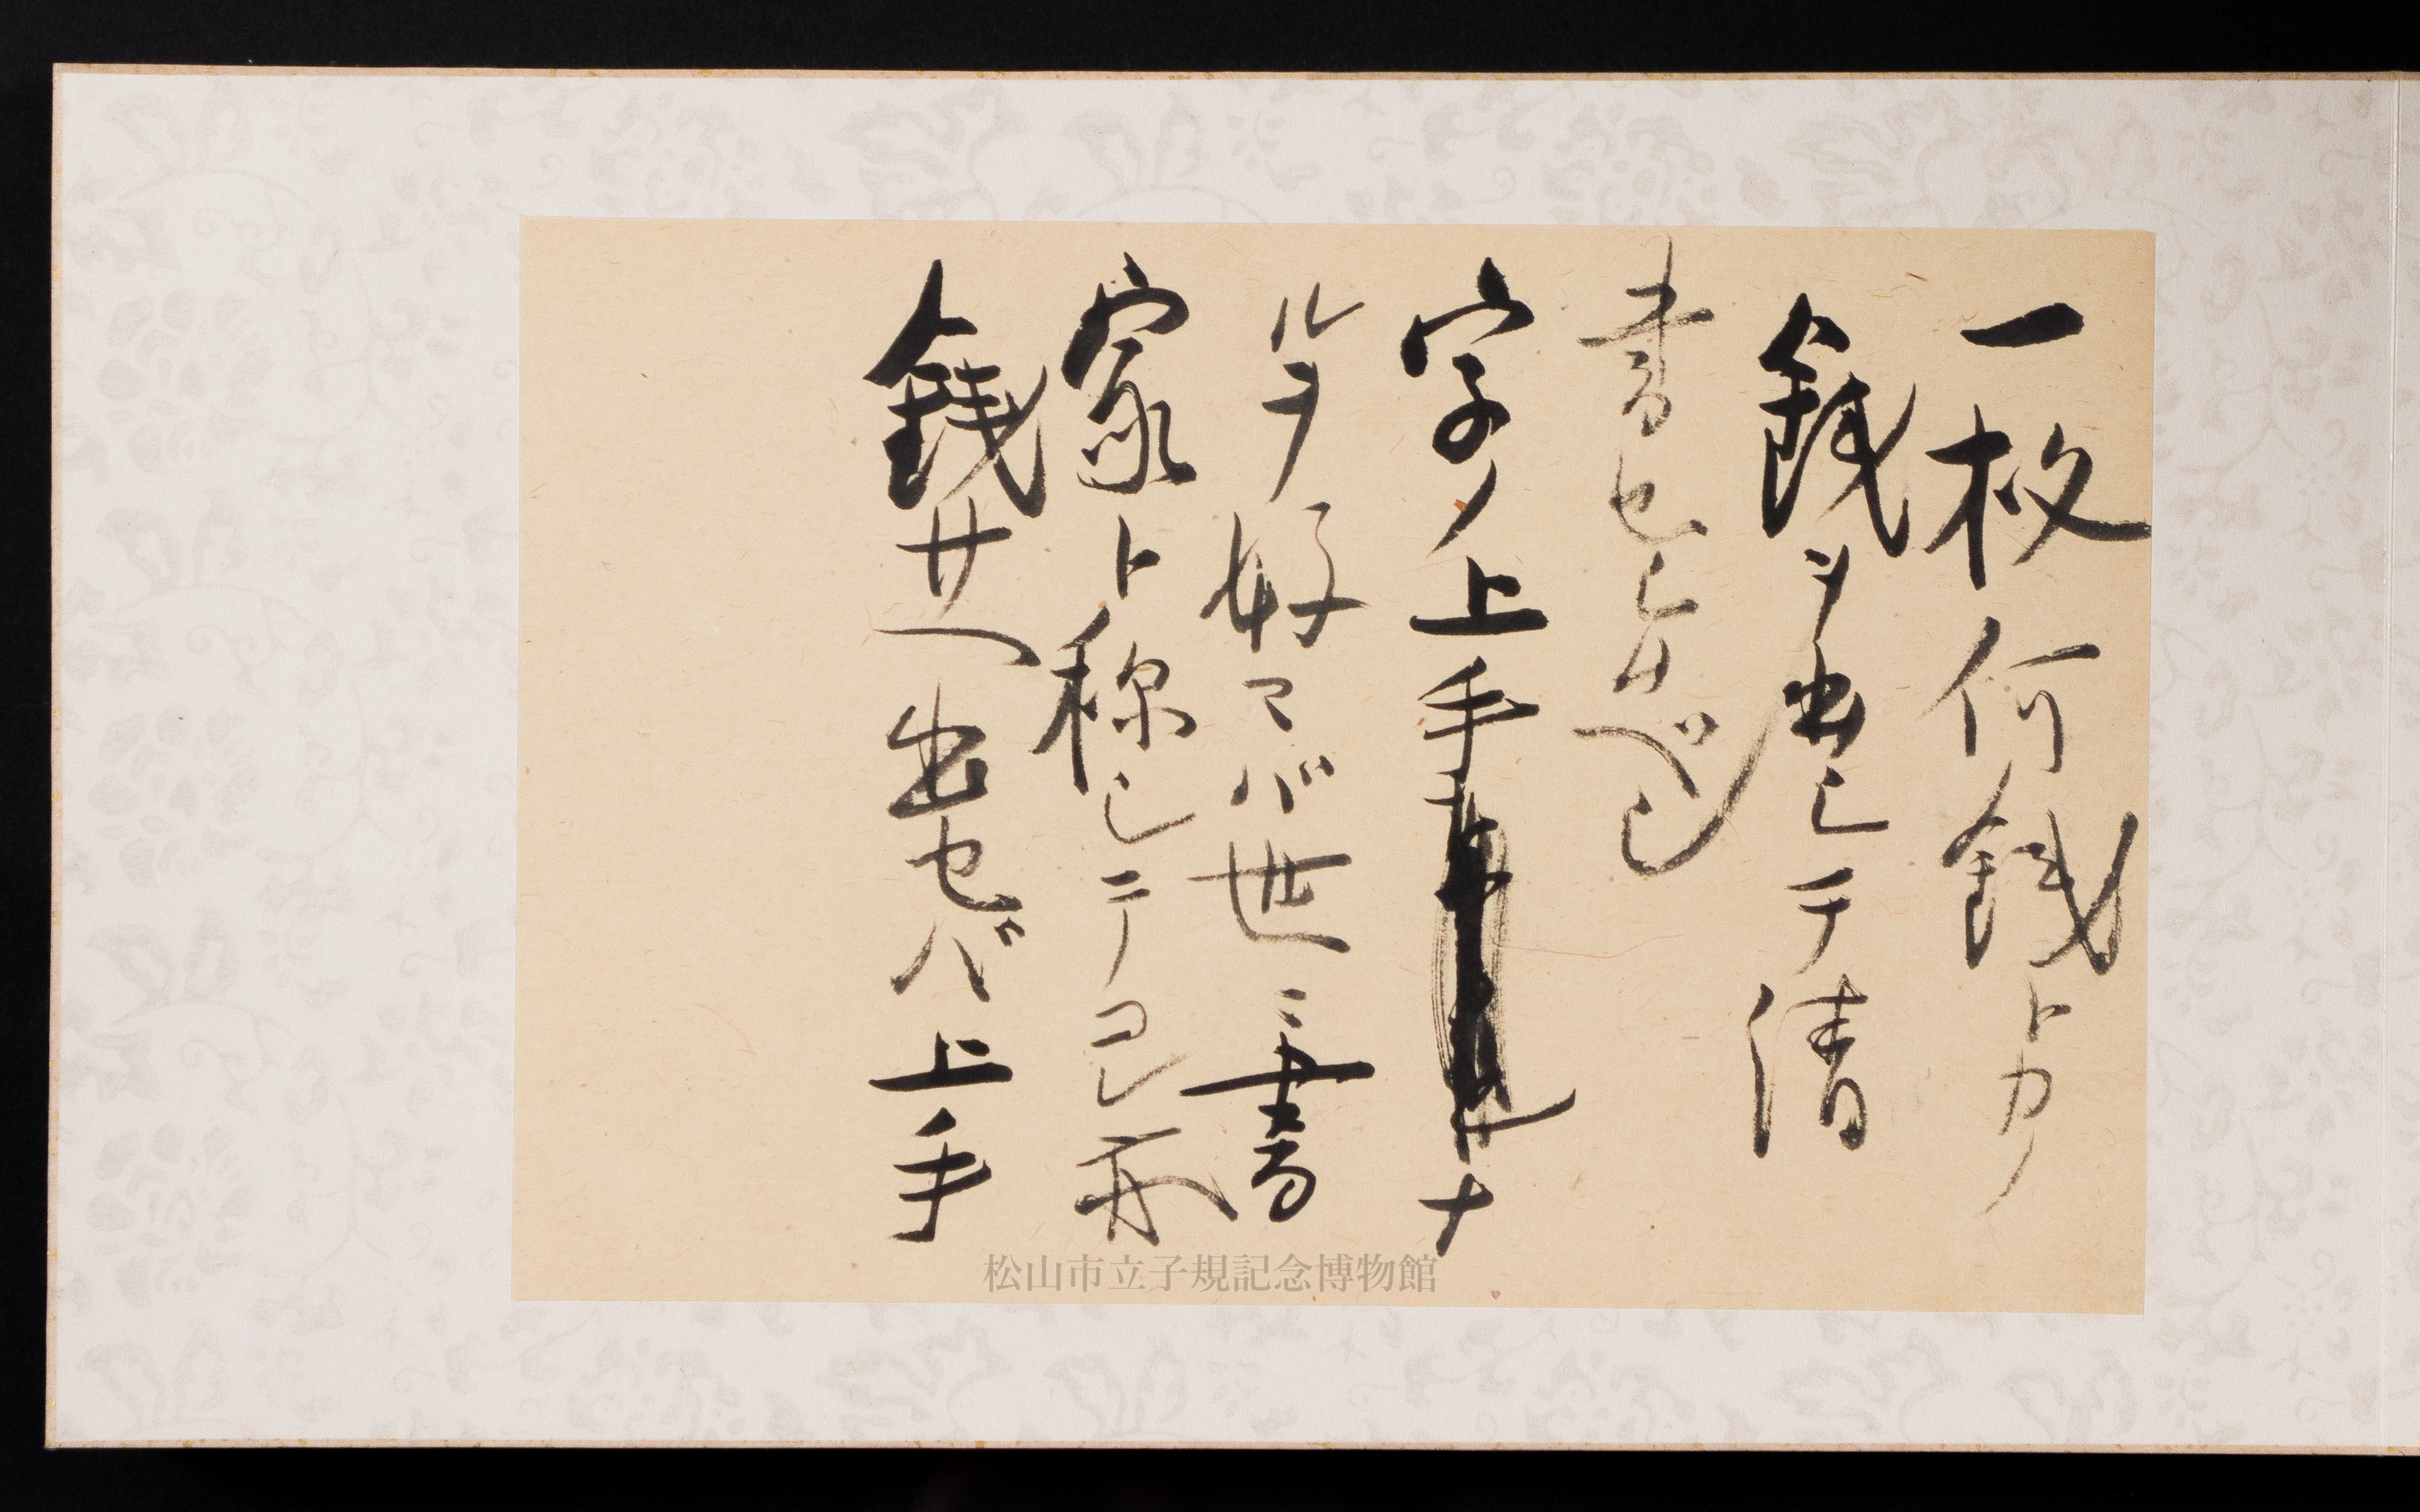 一枚何銭トカ
銭ヲ出シテ清
書セシムベシ
字ノ上手ナ
ルヲ好マバ世ニ書
家ト称シテコレ亦
銭サヘ出セバ上手
松山市立子規記念博物館